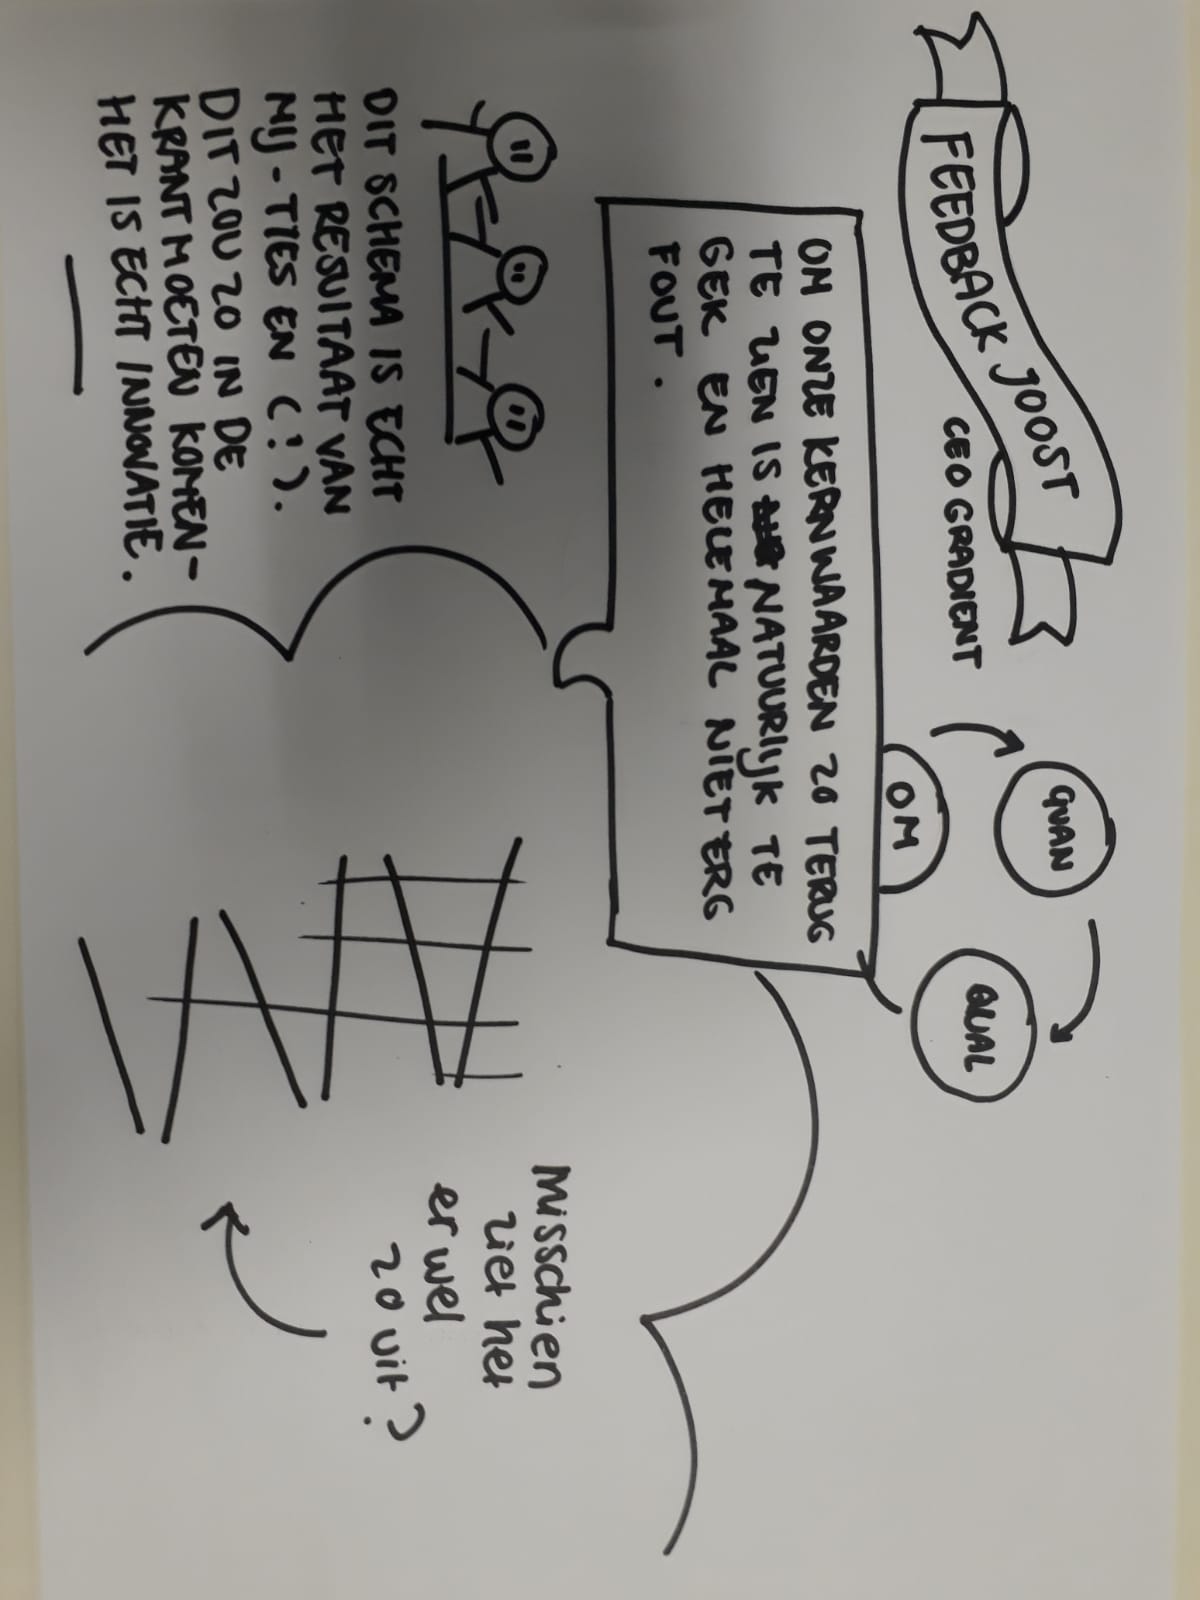 FEEDBACK JOOST
CEO GRADIENT
QUAN
QUAL
OM
OM ONZE KERNWAARDEN ZO TERUG
TE ZIEN IS NATUURLIJK TE
GEK EN HELEMAAL NIET ERG
FOUT.
DIT SCHEMA IS ECHT
HET RESULTAAT VAN
MIJ-TJES EN (!).
DIT ZOU ZO IN DE
KRANT MOETEN KOMEN-
HET IS ECHT INNOVATIE.
Misschien
ziet het
er wel
zo uit?